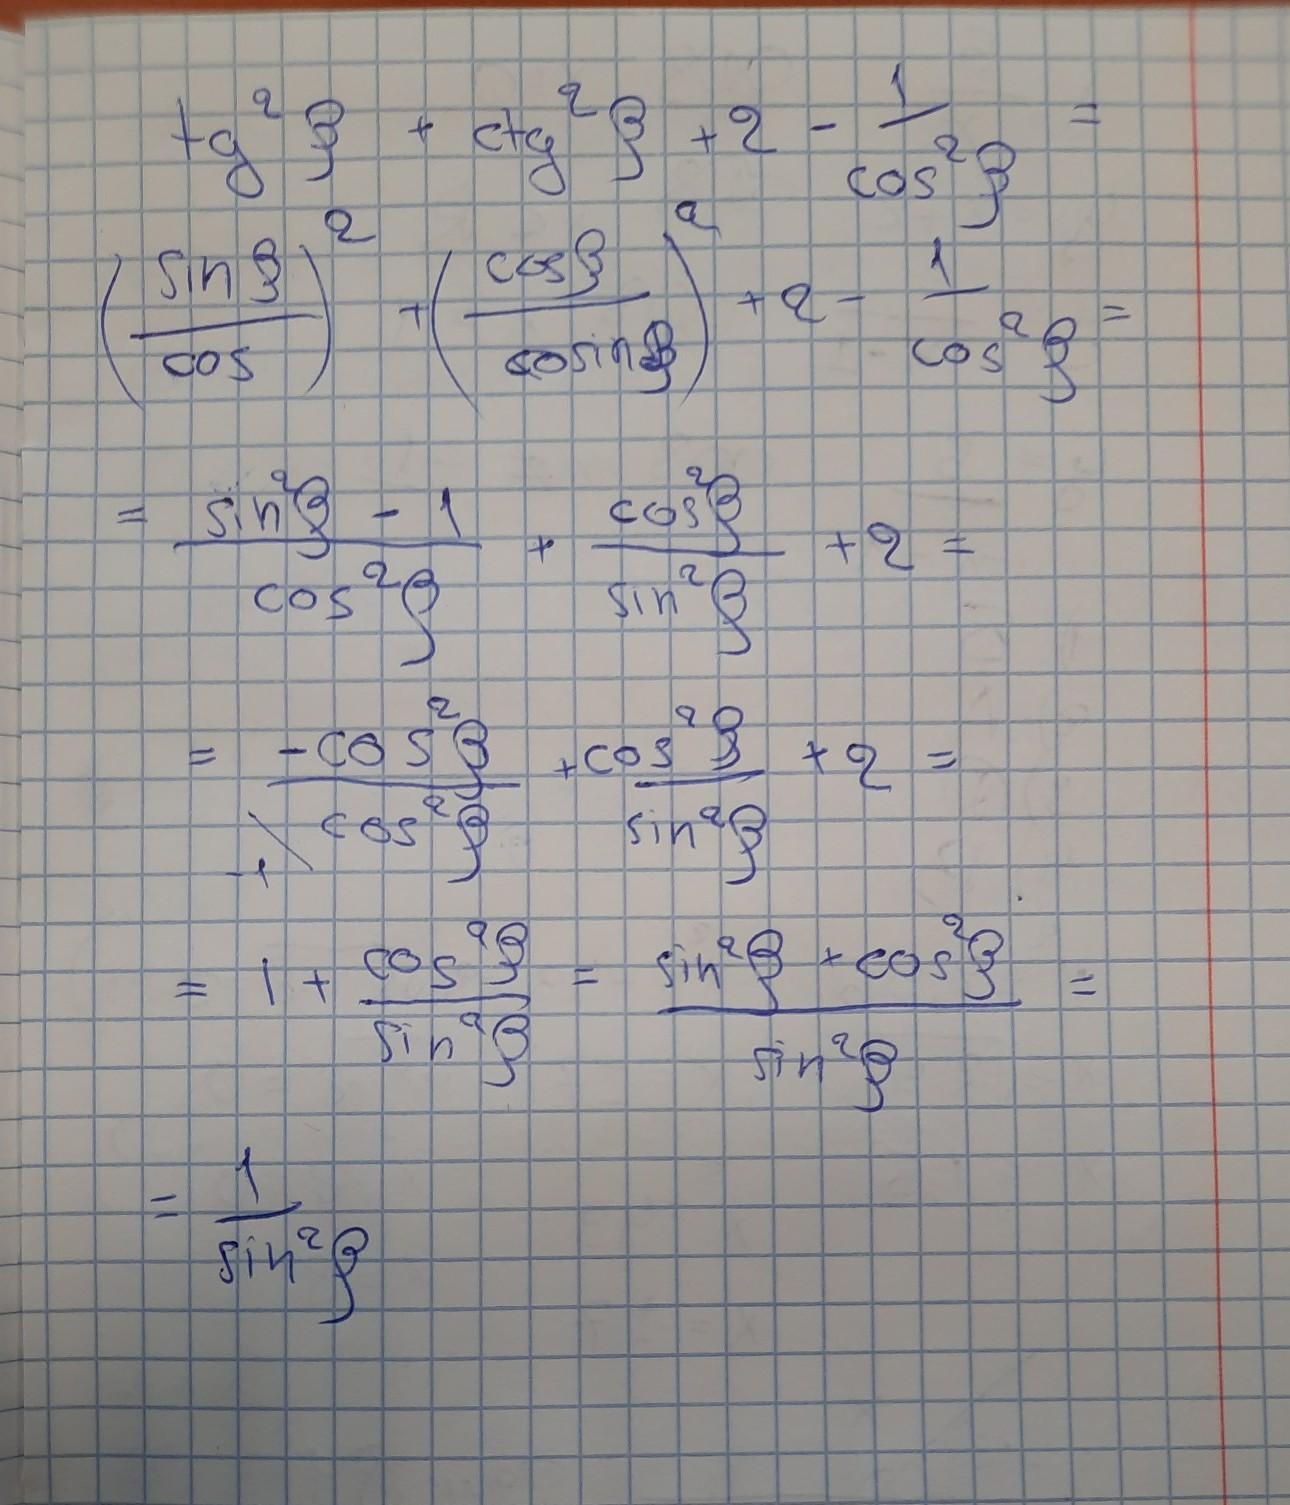 tg²β + ctg²β + 2 - 1/cos²β =
(sinβ/cos)² + (cosβ/cosinβ)² + 2 - 1/cos²β =
= (sin²β - 1)/cos²β + cos²β/sin²β + 2 =
= -cos²β/cos²β + cos²β/sin²β + 2 =
-1
= 1 + cos²β/sin²β = (sin²β + cos²β)/sin²β =
= 1/sin²β